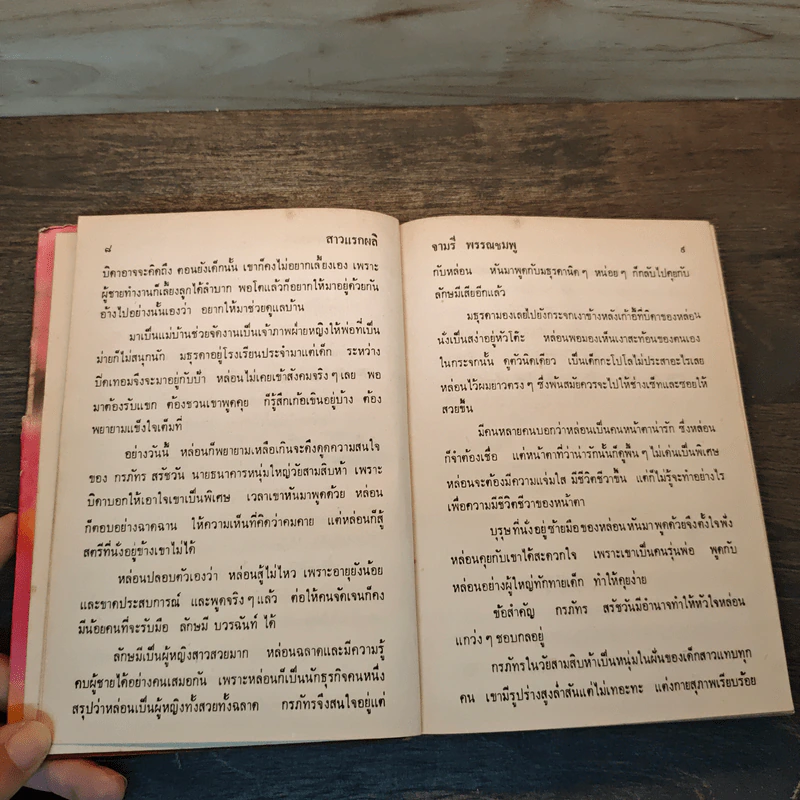 ๘
สาวแรกผลิ
บิดาอาจจะคิดถึง ตอนยังเด็กนั้น เขาก็คงไม่อยากเลี้ยงเอง เพราะ
ผู้ชายทำงานก็เลี้ยงลูกได้ลำบาก พอโตแล้วก็อยากให้มาอยู่ด้วยกัน
อ้างไปอย่างนั้นเองว่า อยากให้มาช่วยดูแลบ้าน
มาเป็นแม่บ้านช่วยจัดงานเป็นเจ้าภาพฝ่ายหญิงให้พ่อที่เป็น
ม่ายก็ไม่สนุกนัก มธุรดาอยู่โรงเรียนประจำมาแต่เด็ก ระหว่าง
ปิดเทอมจึงจะมาอยู่กับป้า หล่อนไม่เคยเข้าสังคมจริง ๆ เลย พอ
มาต้องรับแขก ต้องชวนเขาพูดคุย ก็รู้สึกเก้อเขินอยู่บ้าง ต้อง
พยายามแข็งใจเต็มที่
อย่างวันนี้ หล่อนก็พยายามเหลือเกินจะดึงดูดความสนใจ
ของ กรภัทร สรัชวัน นายธนาคารหนุ่มใหญ่วัยสามสิบห้า เพราะ
บิดาบอกให้เอาใจเขาเป็นพิเศษ เวลาเขาหันมาพูดด้วย หล่อน
ก็ตอบอย่างฉาดฉาน ให้ความเห็นที่คิดว่าคมคาย แต่หล่อนก็สู้
สตรีที่นั่งอยู่ข้างเขาไม่ได้
หล่อนปลอบตัวเองว่า หล่อนสู้ไม่ไหว เพราะอายุยังน้อย
และขาดประสบการณ์ และพูดจริง ๆ แล้ว ต่อให้คนจัดเจนก็คง
มีน้อยคนที่จะรับมือ ลักษมี บวรฉันท์ ได้
ลักษมีเป็นผู้หญิงสาวสวยมาก หล่อนฉลาดและมีความรู้
คบผู้ชายได้อย่างคนเสมอกัน เพราะหล่อนก็เป็นนักธุรกิจคนหนึ่ง
สรุปว่าหล่อนเป็นผู้หญิงทั้งสวยทั้งฉลาด กรภัทรจึงสนใจอยู่แต่
จามรี พรรณชมพู
๙
กับหล่อน หันมาพูดกับมธุรดานิด ๆ หน่อย ๆ ก็กลับไปคุยกับ
ลักษมีเสียอีกแล้ว
มธุรดามองเลยไปยังกระจกเงาข้างหลังเก้าอี้ที่บิดาของหล่อน
นั่งเป็นสง่าอยู่หัวโต๊ะ หล่อนพอมองเห็นเงาสะท้อนของตนเอง
ในกระจกนั้น ดูตัวนิดเดียว เป็นเด็กกะโปโลไม่ประสาอะไรเลย
หล่อนไว้ผมยาวตรง ๆ ซึ่งพ้นสมัยควรจะไปให้ช่างเซ็ทและซอยให้
สวยขึ้น
มีคนหลายคนบอกว่าหล่อนเป็นคนหน้าตาน่ารัก ซึ่งหล่อน
ก็จำต้องเชื่อ แต่หน้าตาที่ว่าน่ารักนั้นก็ดูพื้น ๆ ไม่เด่นเป็นพิเศษ
หล่อนจะต้องมีความแจ่มใส มีชีวิตชีวาขึ้น แต่ก็ไม่รู้จะทำอย่างไร
เพื่อความมีชีวิตชีวาของหน้าตา
บุรุษที่นั่งอยู่ซ้ายมือของหล่อนหันมาพูดด้วยจึงตั้งใจฟัง
หล่อนคุยกับเขาได้สะดวกใจ เพราะเขาเป็นคนรุ่นพ่อ พูดกับ
หล่อนอย่างผู้ใหญ่ทักทายเด็ก ทำให้คุยง่าย
ข้อสำคัญ กรภัทร สรัชวันมีอำนาจทำให้หัวใจหล่อน
แกว่ง ๆ ชอบกลอยู่
กรภัทรในวัยสามสิบห้าเป็นหนุ่มในฝันของเด็กสาวแทบทุก
คน เขามีรูปร่างสูงล่ำสันแต่ไม่เทอะทะ แต่งกายสุภาพเรียบร้อย